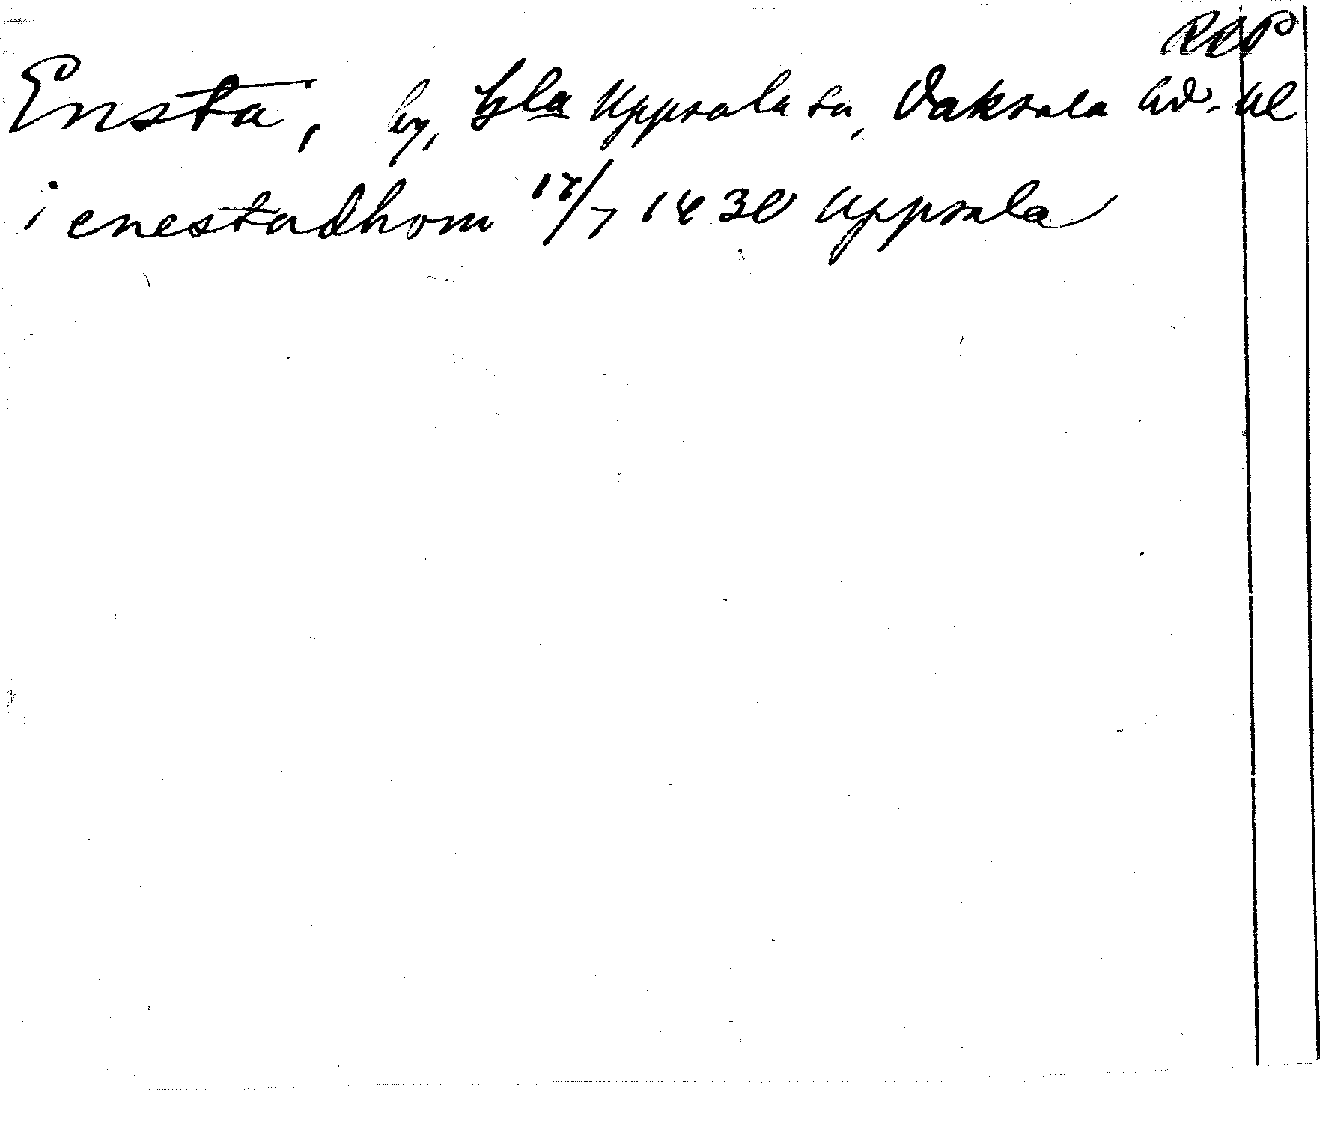 RAP
Ensta, by, Gla Uppsala sn, Vaksala hd. Ul
i enestadhom 17/7 1430 Uppsala